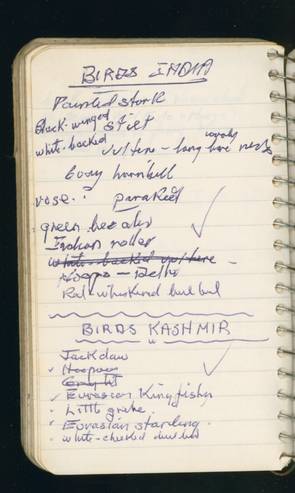 BIRDS INDIA
Painted stork
Black-winged stilt
white-backed vulture - long bare necks
Grey hornbill
rose-: parakeet
green bee eater
Indian roller
white-backed vulture -
- Delhi
Red-whiskered bulbul
BIRDS KASHMIR
Jackdaw
Hoopoe
Eurasian Kingfisher
Little grebe.
Eurasian starling.
white-cheeked bulbul